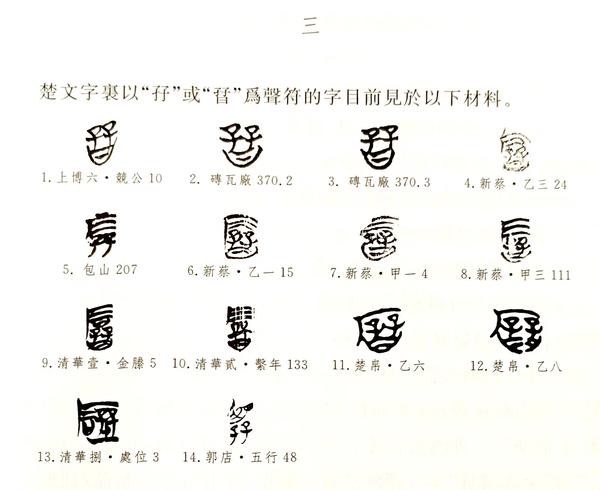 三
楚文字裏以“孖”或“孴”爲聲符的字目前見於以下材料。
1.上博六·競公10 2. 磚瓦廠370.2 3. 磚瓦廠370.3 4.新蔡·乙三24
5. 包山207 6.新蔡·乙一15 7.新蔡·甲一4 8.新蔡·甲三111
9.清華壹·金縢5 10.清華貳·繫年133 11.楚帛·乙六 12.楚帛·乙八
13.清華捌·處位3 14.郭店·五行48